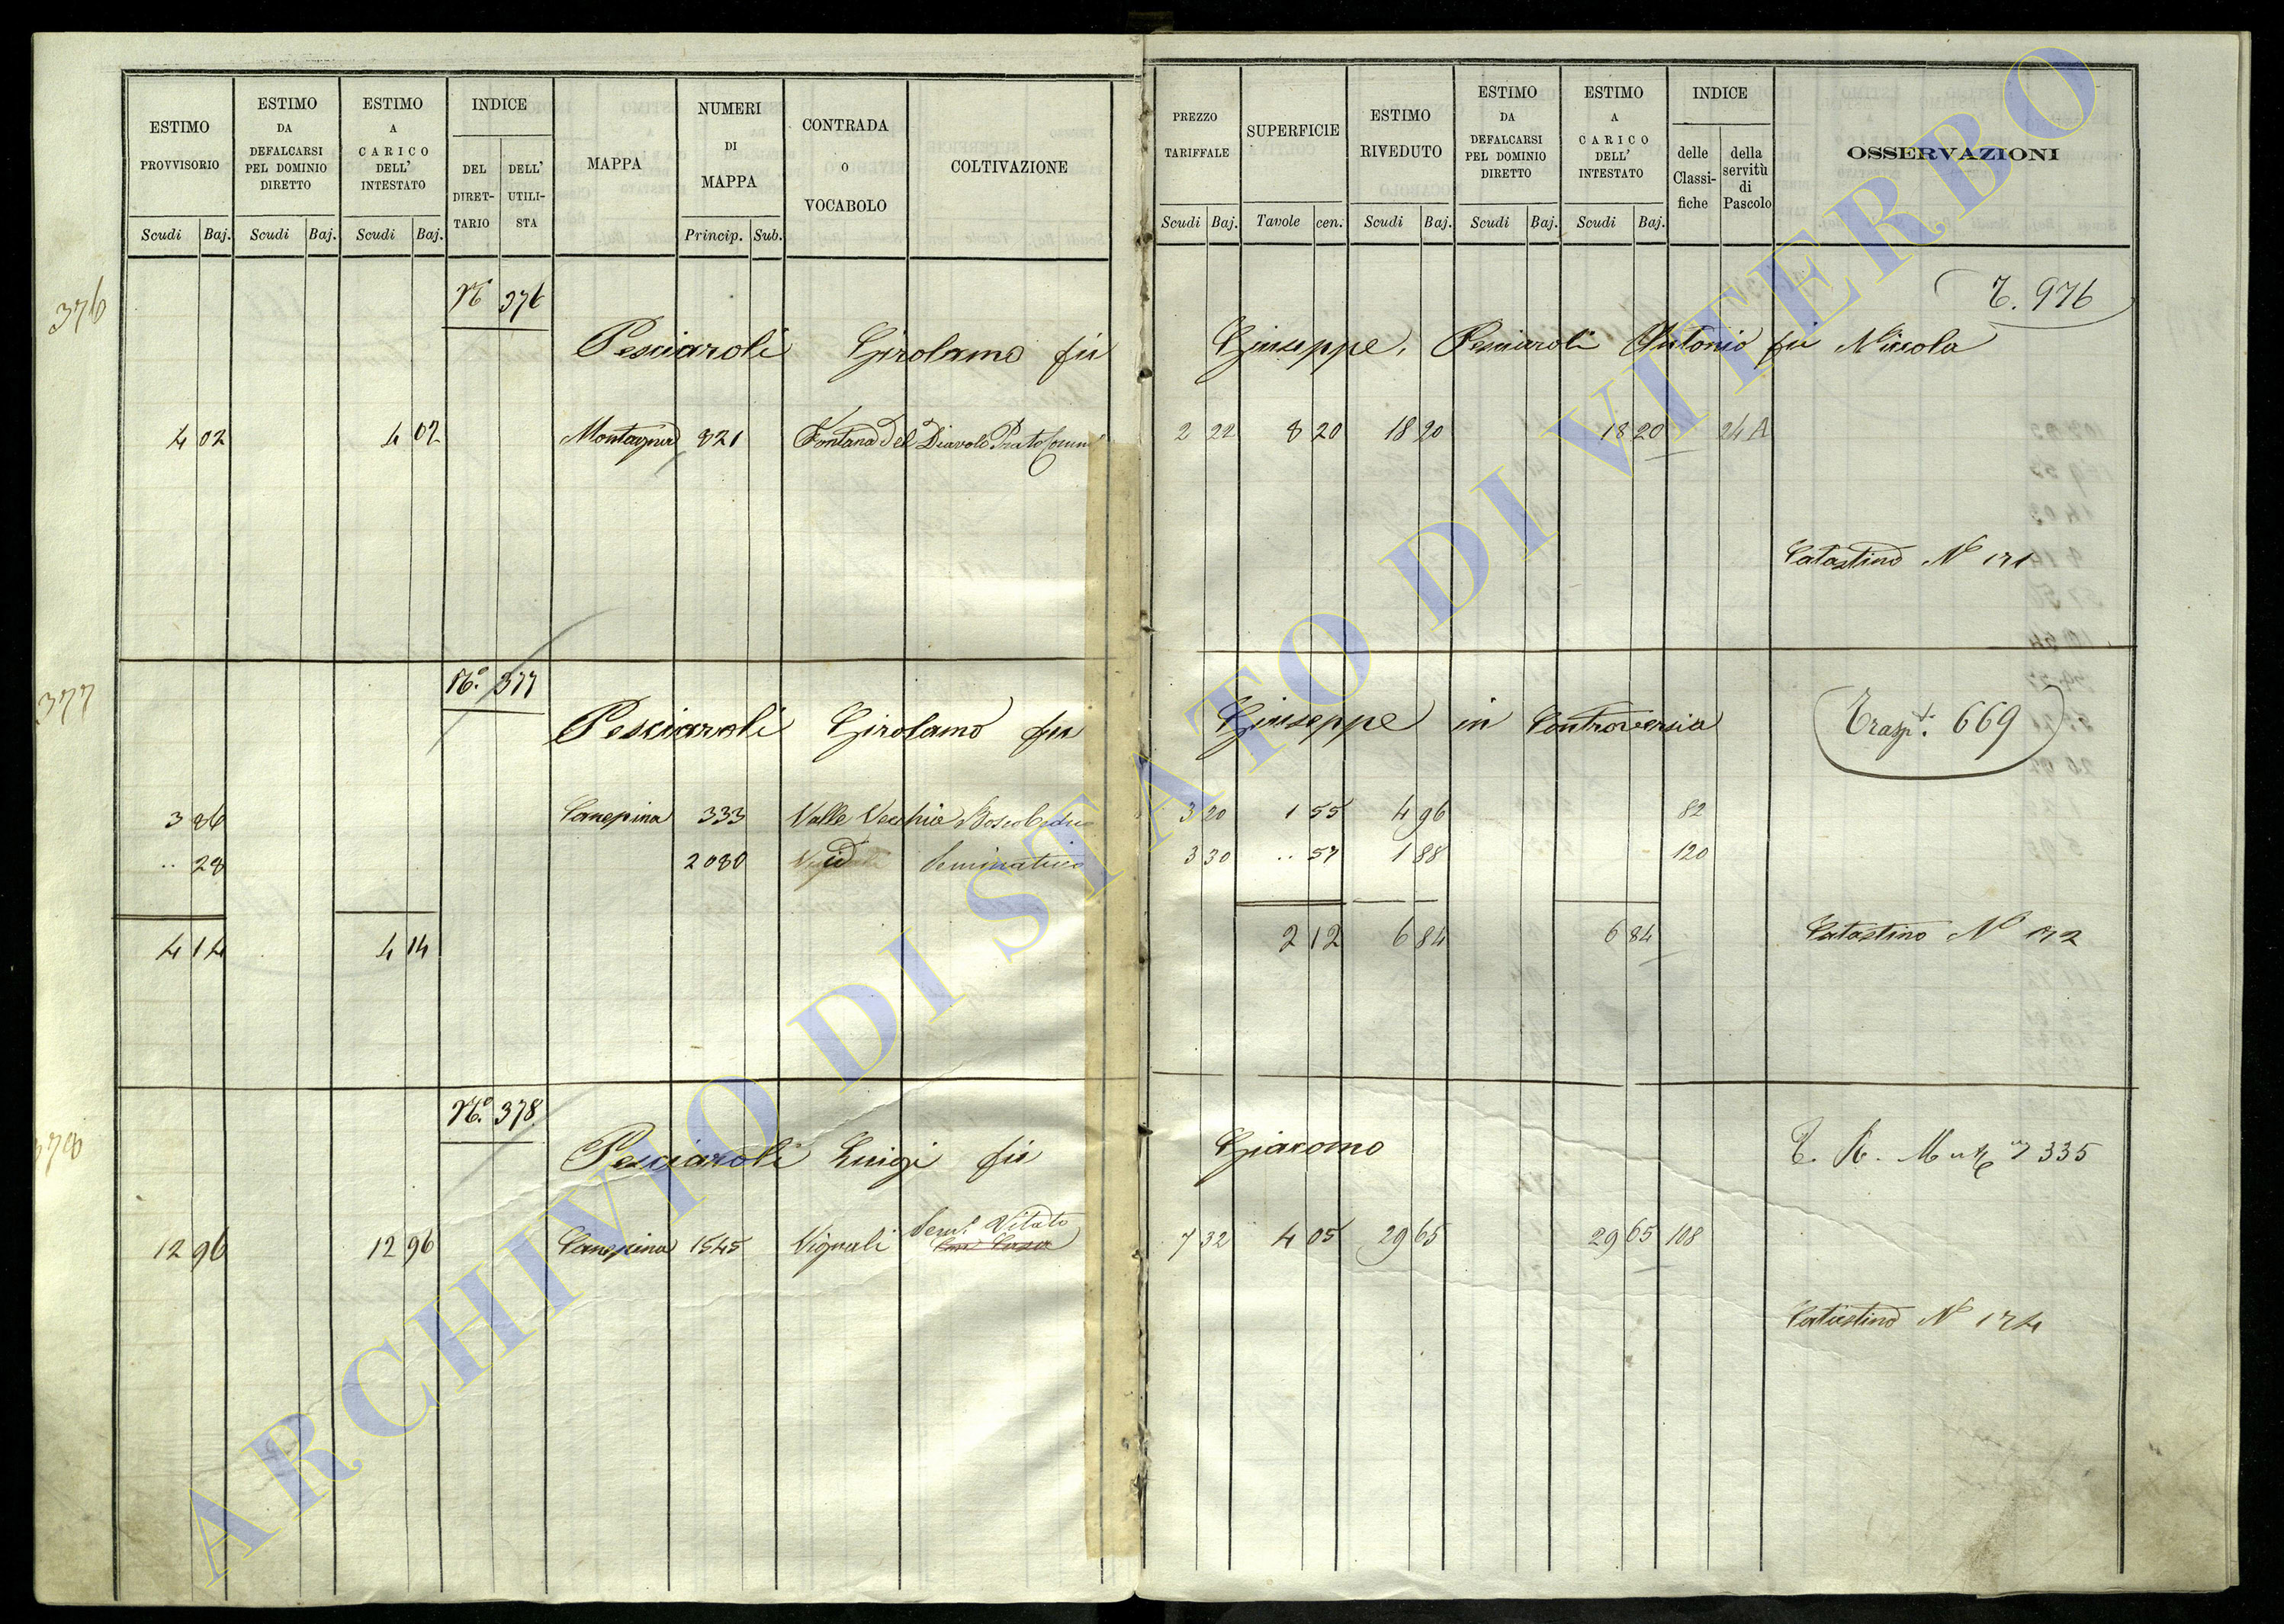 ESTIMO PROVVISORIO Scudi Baj.
ESTIMO DA DEFALCARSI PEL DOMINIO DIRETTO Scudi Baj.
ESTIMO A CARICO DELL' INTESTATO Scudi Baj.
INDICE DEL DIRET-TARIO DELL' UTILI-STA
MAPPA
NUMERI DI MAPPA Princip. Sub.
CONTRADA O VOCABOLO
COLTIVAZIONE
PREZZO TARIFFALE Scudi Baj.
SUPERFICIE Tavole cen.
ESTIMO RIVEDUTO Scudi Baj.
ESTIMO DA DEFALCARSI PEL DOMINIO DIRETTO Scudi Baj.
ESTIMO A CARICO DELL' INTESTATO Scudi Baj.
INDICE delle Classi-fiche della servitù di Pascolo
OSSERVAZIONI
376
N° 376
T. 976
Pesciaroli Girolamo fu Giuseppe, Pesciaroli Antonio fu Nicola
4 02 4 02 821 Fontana del Diavolo Prato 2 22 8 20 18 20 18 20 24 A
Catastino N° 171
377
N°. 377
Pesciaroli Girolamo fu Giuseppe in Controversia
Trasp. 669
3 86 Canepina 333 Valle Vecchia Bosco Ceduo 3 20 1 55 4 96 82
.. 28 2080 id Seminativo 3 30 .. 57 1 88 120
4 14 4 14 2 12 6 84 6 84
Catastino N° 172
378
N°. 378
Pesciaroli Luigi fu Giacomo
335
12 96 12 96 Canepina 1545 Vignali Sem. Vitato 7 32 4 05 29 65 29 65 108
Catastino N° 174
ARCHIVIO DI STATO DI VITERBO